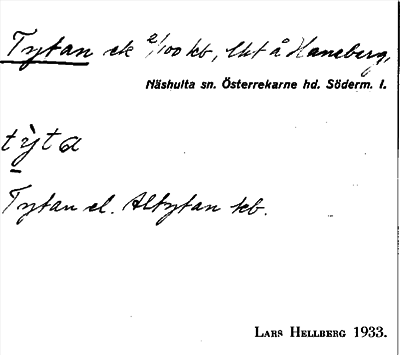 Tytan ek 2/100 kb, Ukt å Haneberg,
Näshulta sn. Österrekarne hd. Söderm. l.
tỳta
Tytan el. Altytan kb.
LARS HELLBERG 1933.